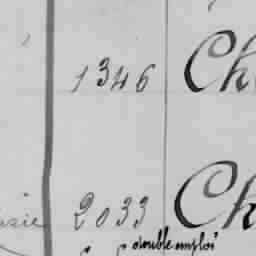 1346 Ch
rie 2033 Ch
double emploi